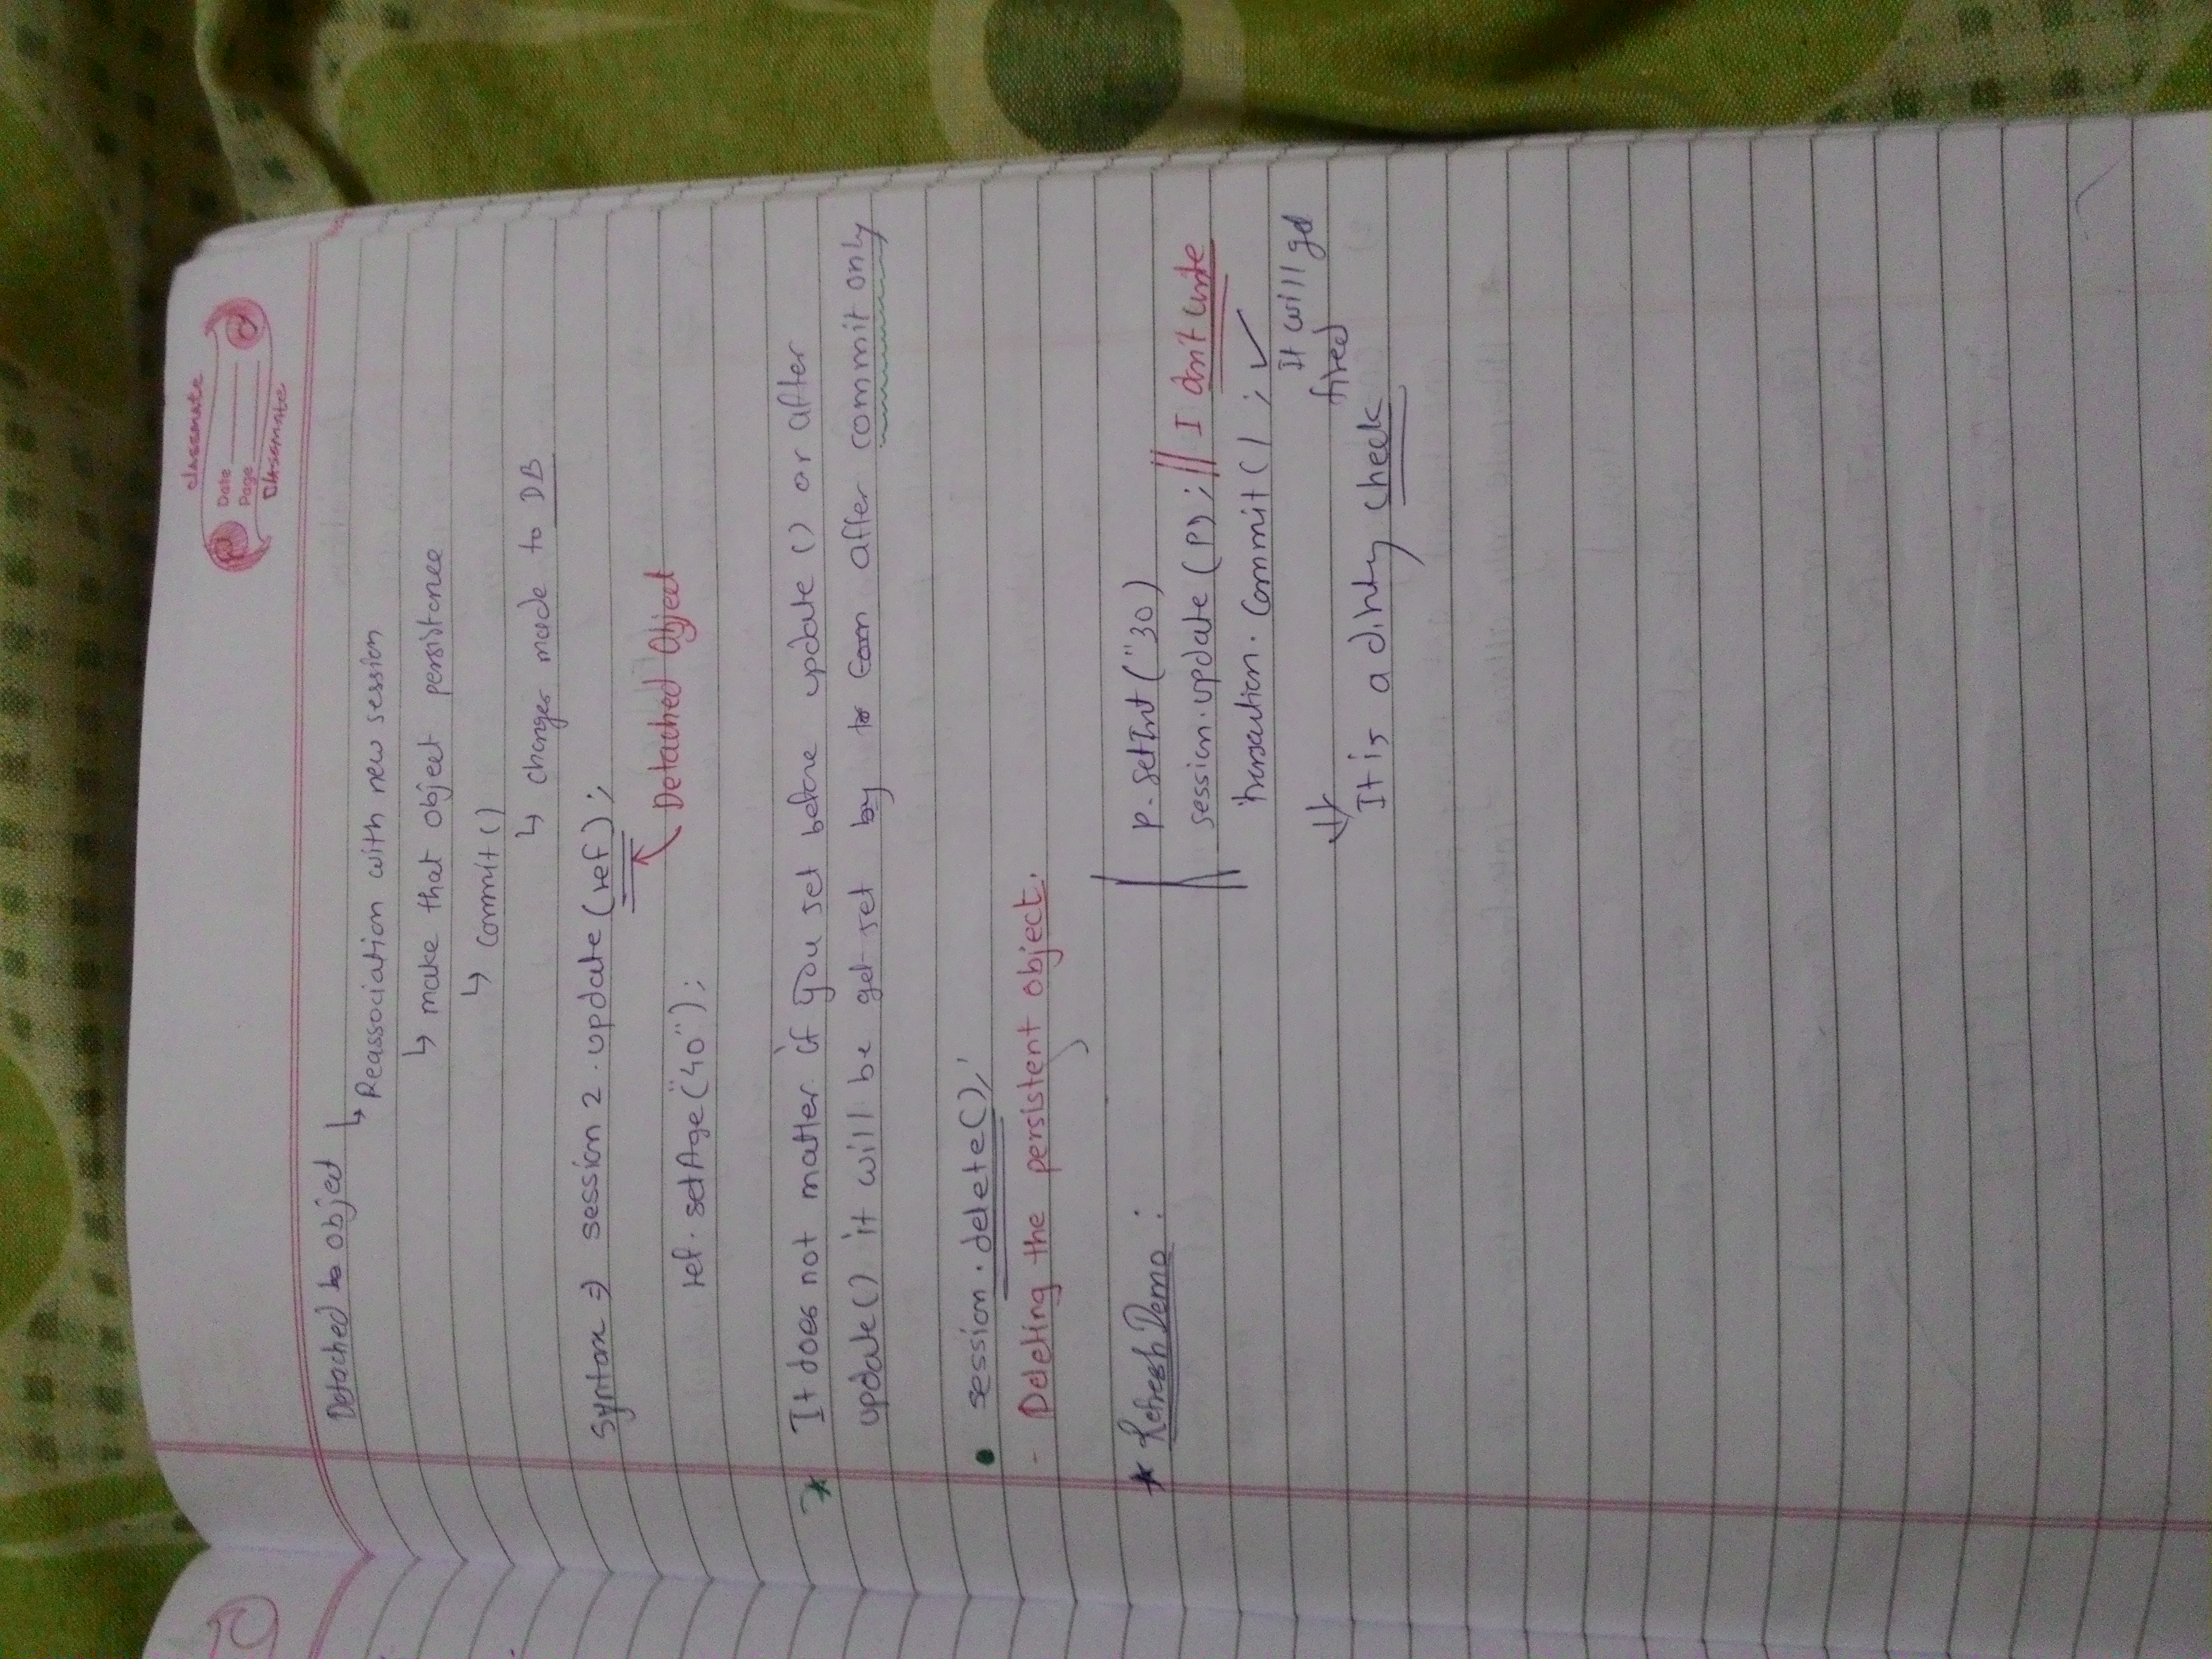 classmate
Date
Page
classmate
Detached be object
↳ Reassociation with new session
↳ make that object persistance
↳ commit ()
↳ changes made to DB
Syntax ⇒ session 2 . update (ref) ;
Detached Object
ref. setAge ("40") ;
* It does not matter if you set before update () or after
update () it will be get set by to Com after commit only
• session . delete () ;
- Deleting the persistent object.
* Refresh Demo :
p. setInt ("30)
session.update (P) ; // I don't write
transaction. Commit ( ) ; ✓
It will get
fired
⇓
It is a dirty check